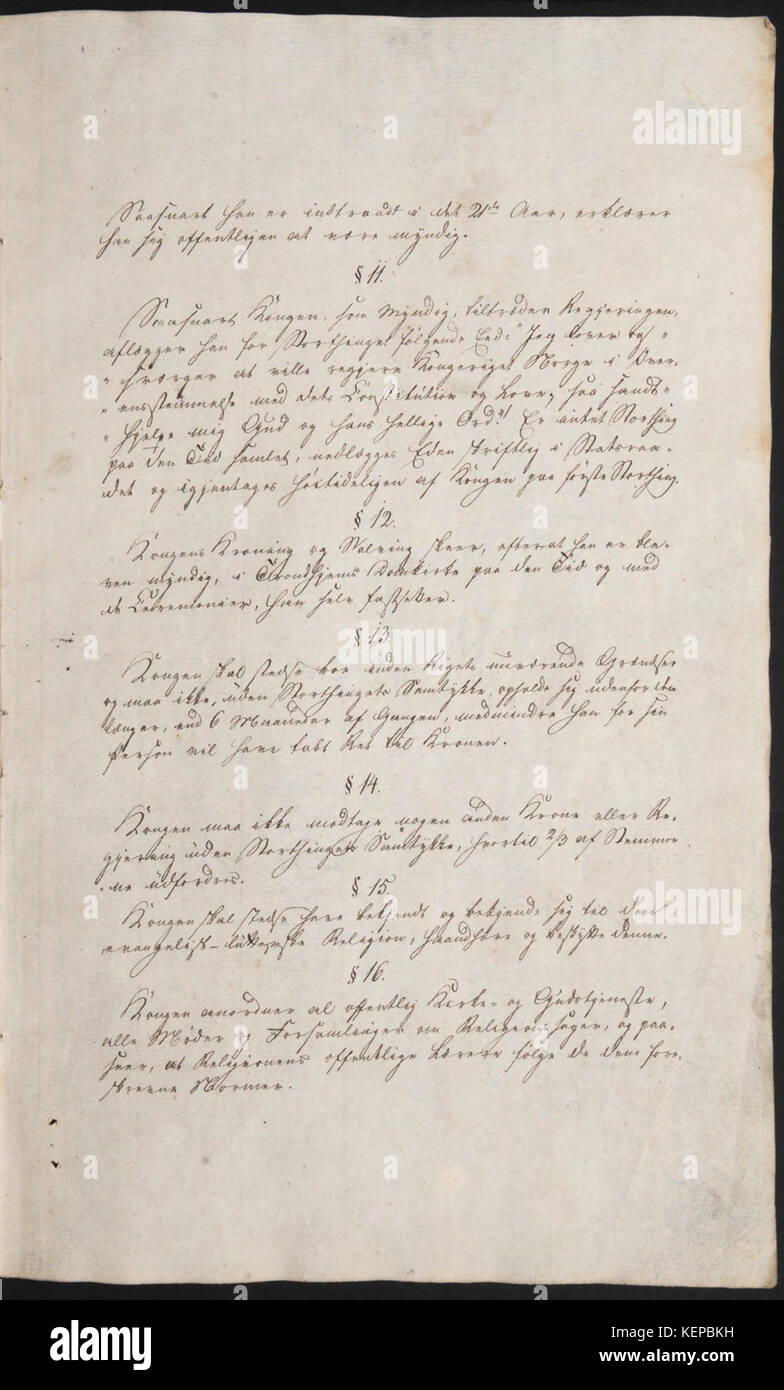 Saasnart han er indtraadt i det 21de Aar, erklærer
han sig offentligen at være myndig.
§ 11.
Saasnart Kongen, som Myndig, tiltræder Regjeringen,
aflægger han for Storthinget følgende Eed: "Jeg lover og "
" sværger at ville regjere Kongeriget Norge i Over-
" ensstemmelse med dets Constitution og Love, saa sandt "
" hjelpe mig Gud og hans hellige Ord!" Er intet Storthing
paa den Tid samlet, nedlægges Eden skriftlig i Statsraa-
det og igjentages høitideligen af Kongen paa første Storthing.
§ 12.
Kongens Kroning og Salving skeer, efterat han er ble-
ven myndig, i Trondhjems Domkirke paa den Tid og med
de Ceremonier, han selv fastsetter.
§ 13.
Kongen skal stedse boe inden Rigets nuværende Grændser
og maa ikke, uden Storthingets Samtykke, opholde sig udenfor dem
længer, end 6 Maaneder af Gangen, medmindre han for sin
Person vil have tabt Ret til Kronen.
§ 14.
Kongen maa ikke modtage nogen anden Krone eller Re-
gjering uden Storthingets Samtykke, hvortil 2/3 af Stemmer-
ne udfordres.
§ 15.
Kongen skal stedse have bekjendt og bekjende sig til den
evangelisk-lutherske Religion, haandhæve og beskytte denne.
§ 16.
Kongen anordner al offentlig Kirke- og Gudstjeneste,
alle Møder og Forsamlinger om Religionssager, og paa-
seer, at Religionens offentlige Lærere følge de dem fore-
skrevne Normer.
alamy
a
alamy
Image ID: KEPBKH
www.alamy.com